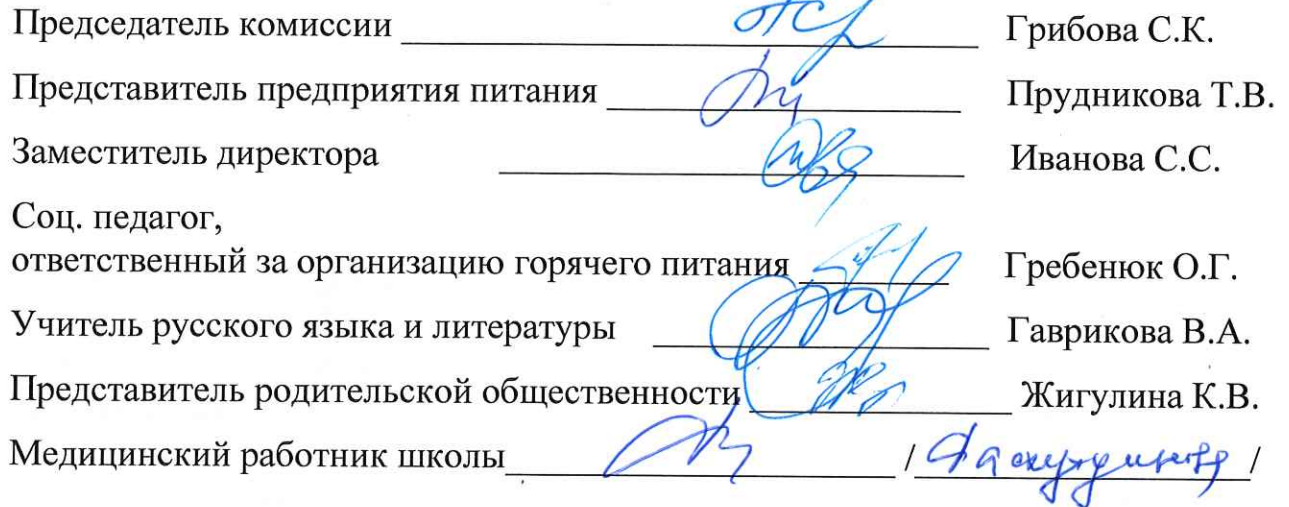 Председатель комиссии Грибова С.К.
Представитель предприятия питания Прудникова Т.В.
Заместитель директора Иванова С.С.
Соц. педагог,
ответственный за организацию горячего питания Гребенюк О.Г.
Учитель русского языка и литературы Гаврикова В.А.
Представитель родительской общественности Жигулина К.В.
Медицинский работник школы / /